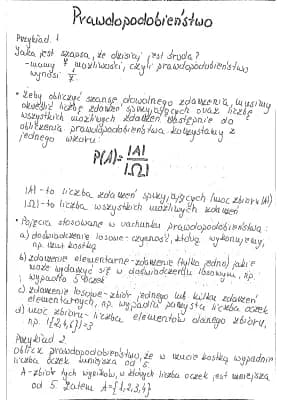 Prawdopodobieństwo
Przykład 1
Jaka jest szansa, że dzisiaj jest środa?
-mamy 7 możliwości, czyli prawdopodobieństwo
wynosi 1/7.
• Żeby obliczyć szansę dowolnego zdarzenia, musimy
określić liczbę zdarzeń sprzyjających oraz liczbę
wszystkich możliwych zdarzeń. Następnie do
obliczenia prawdopodobieństwa korzystamy z
jednego wzoru:
P(A)=|A|/|Ω|
|A|-to liczba zdarzeń sprzyjających (moc zbioru (A)
|Ω|-to liczba wszystkich możliwych zdarzeń
• Pojęcia stosowane w rachunku prawdopodobieństwa:
a) doświadczenie losowe-czynność, którą wykonujemy,
np. rzut kostką
b) zdarzenie elementarne-zdarzenie (tylko jedno) jakie
może wydarzyć się w doświadczeniu losowym, np.
wypadło 5 oczek
c) zdarzenie losowe-zbiór jednego lub kilku zdarzeń
elementarnych, np. wypadła parzysta liczba oczek
d) moc zbioru-liczba elementów danego zbioru,
np. |{2,4,6}|=3
Przykład 2
Oblicz prawdopodobieństwo, że w rzucie kostką wypadnie
liczba oczek mniejsza od 5.
A-zbiór tych wyników, w których liczba oczek jest mniejsza
od 5. Zatem A={1,2,3,4}